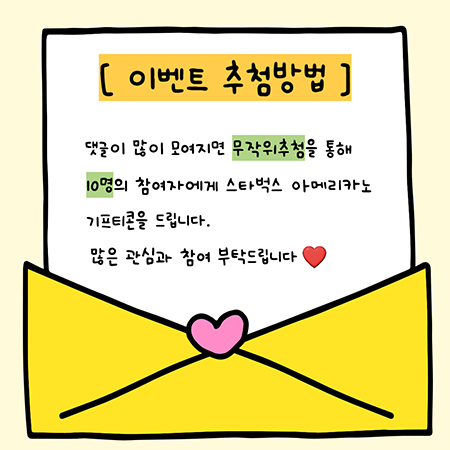 [ 이벤트 추첨방법 ]
댓글이 많이 모여지면 무작위추첨을 통해
10명의 참여자에게 스타벅스 아메리카노
기프티콘을 드립니다.
많은 관심과 참여 부탁드립니다 ❤️